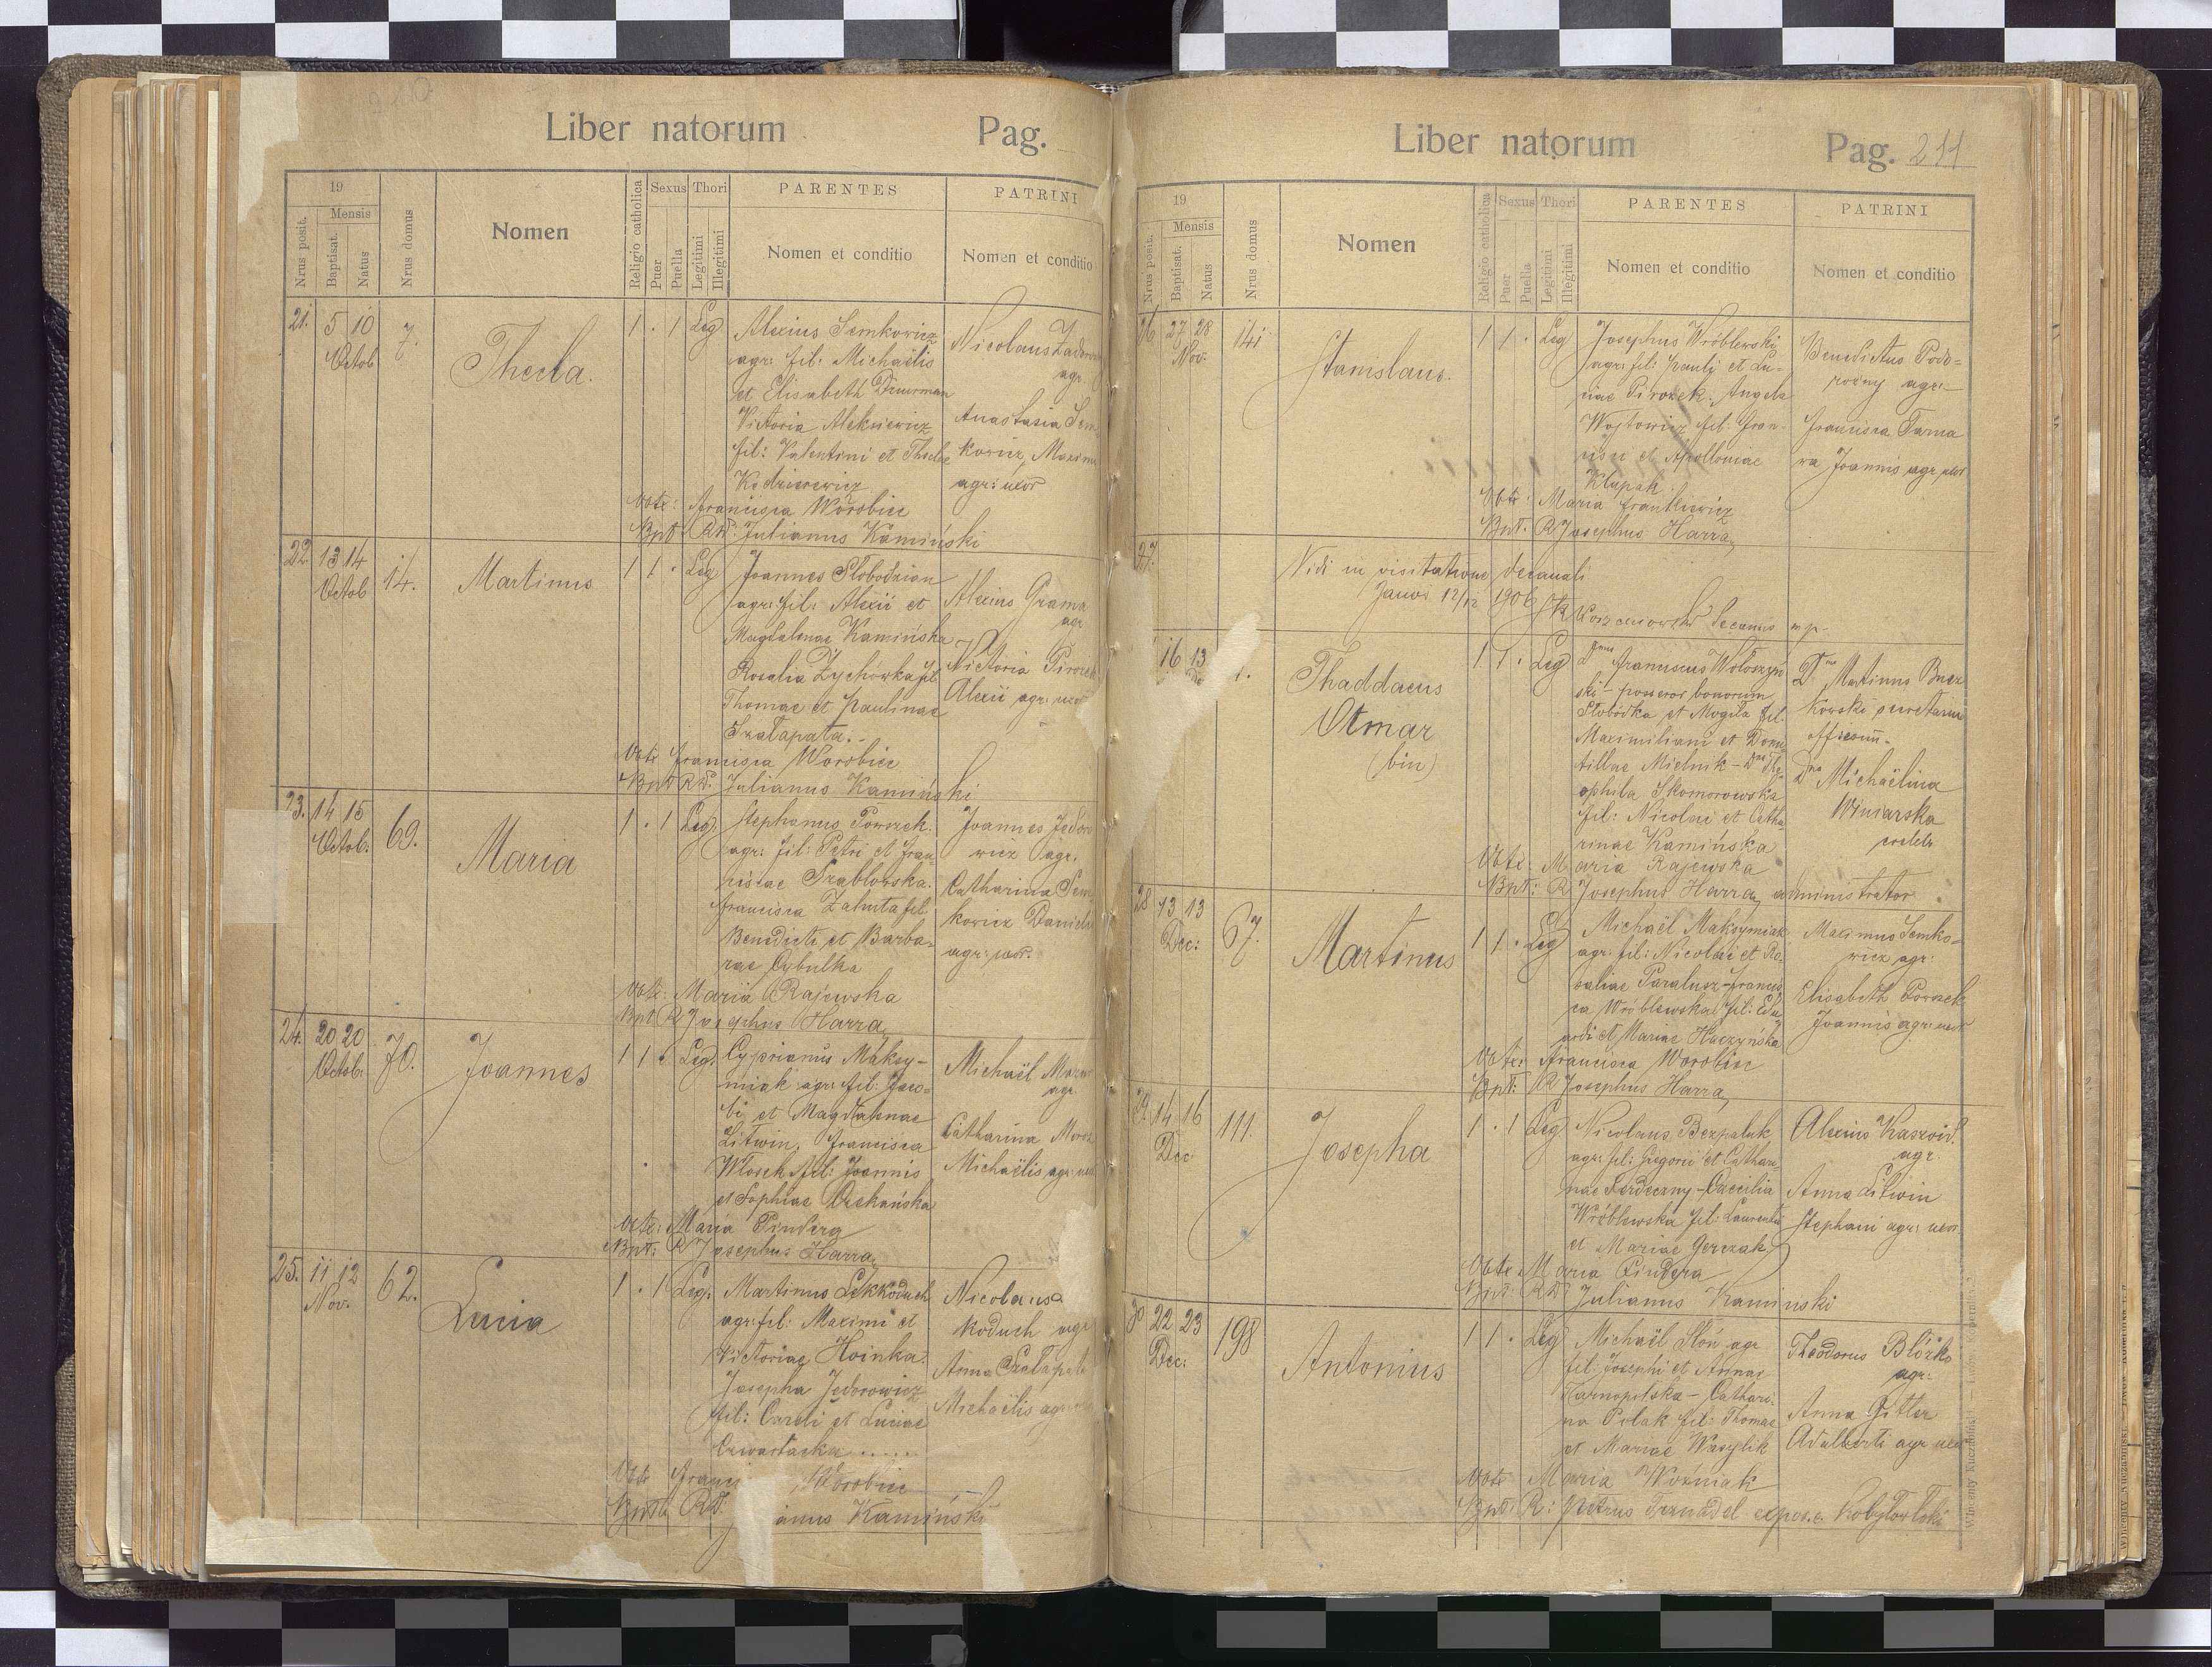 Liber natorum Pag.
19
Mensis
Nrus posit.
Baptisat.
Natus
Nrus domus
Nomen
Religio catholica
Sexus
Puer
Puella
Thori
Legitimi
Illegitimi
PARENTES
Nomen et conditio
PATRINI
Nomen et conditio
21. 5 10 Octob 7. Thecla. 1 . 1 Leg
Alexius Semkowicz
agr: fil: Michaëlis
et Elisabeth
Victoria Aleksiewicz
fil: Valentini et Theclae
Nicolaus
agr
Anastasia Sem
kowicz, Maximi
agr: uxor
Obtx: Francisca Worobiec
Bpt. RD. Julianus Kamiński
22. 13 14 Octob 14. Martinus 1 1 . Leg
Joannes Slobodzian
agr: fil: Alexii et
Magdalenae Kamińska
Rosalia Zychówka fil
Thomae et Paulinae
Szatapata.-
Alexius Grama
agr
Victoria Pirozek
Alexii agr: uxor
Obtx Francisca Worobiec
Bpt RD. Julianus Kamiński
23. 14 15 Octob: 69. Maria 1 . 1 Leg.
Stephanus Powszek
agr: fil: Petri et Fran-
ciscae Szablowska.
Francisca Zaluta fil
Benedicti et Barba-
rae Cybulka
Joannes Jedoro
wicz agr.
Catharina Sem
kowicz Danielis
agr: uxor.
Obtx: Maria Rajewska
Bpt R Josephus Harra
24. 20 20 Octob: 70. Joannes 1 1 . Leg.
Cyprianus Maksy-
miak agr: fil: Jaco-
bi et Magdalenae
Litwin, Francisca
Wlosek fil: Joannis
et Sophiae
Michaël
agr
Catharina
Michaëlis agr: uxor
Obtx: Maria Pindera
Bpt: R Josephus Harra
25. 11 12 Nov. 62. Lucia 1 . 1 Leg.
Martinus
agr: fil: Maximi et
Victoriae Hoinka.
Josepha Jedorowicz
fil: Caroli et Luciae
Nicolaus
koduch agr
Anna Szatapata
Michaëlis agr
Obtx Franci Worobiec
Bpt RD. ianus Kamiński
Liber natorum Pag. 211
19
Mensis
Nrus posit.
Baptisat.
Natus
Nrus domus
Nomen
Religio catholica
Sexus
Puer
Puella
Thori
Legitimi
Illegitimi
PARENTES
Nomen et conditio
PATRINI
Nomen et conditio
26 27 28 Nov. 141 Stanislaus. 1 1 . Leg
Josephus Wróblewski
agr: fil: Pauli et Lu-
ciae Pirozek. Angela
Wojtowicz fil: Fran-
cisci et Apolloniae
Klupak
Benedictus Podo-
rozny agr:
Francisca Tama
ra Joannis agr uxor
Obtx: Maria Frankiewicz
Bpt: R Josephus Harra
27.
Vidi in visitatione decanali
Janów 12/12 1906 Decanus mp
16 13 1. Thaddaeus
Otmar
(bin)
1 1 . Leg
Dnus Franciscus Wołoszyń
ski - possesor bonorum
Slobódka et Mogiła fil.
Maximiliani et Domi
tillae Mielnik - Dna The-
ophila Skomorowska
fil: Nicolai et Catha-
rinae Kamińska
Dnus Martinus
kowski secretarius
Dna Michaëlina
Winiarska
Obtx: Maria Rajewska
Bpt: R Josephus Harra administrator
28 13 13 Dec: 67. Martinus 1 1 . Leg
Michaël Maksymiak
agr: fil: Nicolai et Ro-
saliae Paralusz - Francis
ca Wróblewska fil: Edu
ardi et Mariae Huczyńska
Maximus Semko-
wicz agr:
Elisabeth Powszek
Joannis agr: uxor
Obtx: Francisca Worobiec
Bpt: R Josephus Harra
29. 14 16 Dec 111. Josepha 1 . 1 Leg
Nicolaus Bezpaluk
agr: fil: Gregorii et Cathari-
nae Serdeczny - Caecilia
Wróblewska fil: Laurentii
et Mariae Gerczak
Alexius
agr.
Anna Litwin
Stephani agr: uxor
Obtx Maria Pindera
Bpt: RD Julianus Kaminski
30 22 23 Dec: 198 Antonius 1 1 . Leg
Michaël Słoń agr
fil: Josephi et Annae
Tarnopolska - Cathari-
na Polak fil: Thomae
et Mariae Wasylik
Theodorus
agr:
Anna Gitter
Adalberti agr uxor
Obtx Maria Woźniak
Bpt: R: Petrus Sznadel